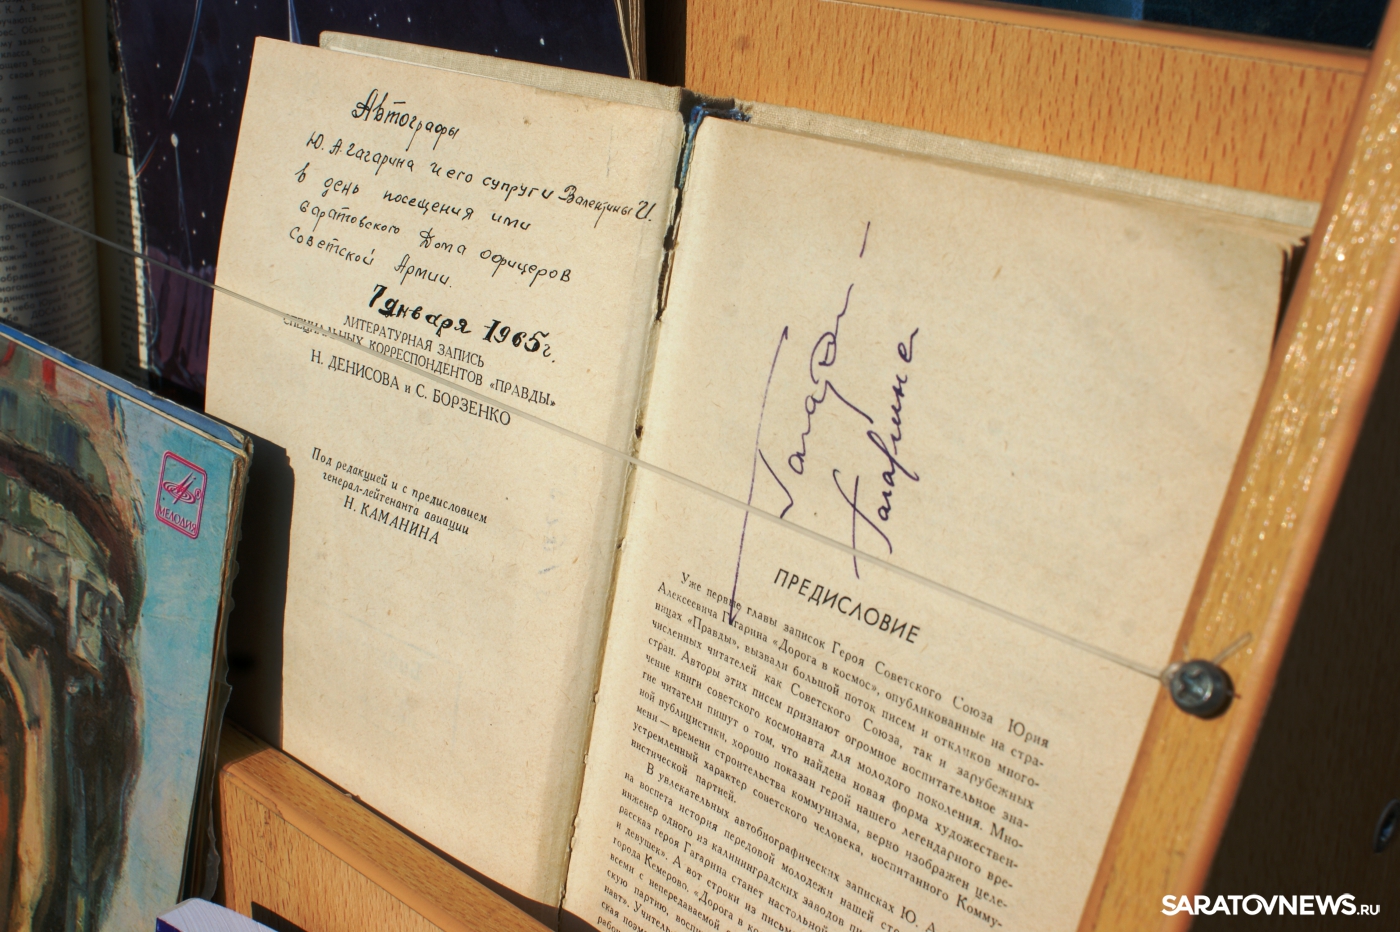 Автографы
Ю. А. Гагарина и его супруги Валентины И.
в день посещения ими
Саратовского Дома офицеров
Советской Армии.
7 января 1965г.
ЛИТЕРАТУРНАЯ ЗАПИСЬ
СПЕЦИАЛЬНЫХ КОРРЕСПОНДЕНТОВ «ПРАВДЫ»
Н. ДЕНИСОВА и С. БОРЗЕНКО
Под редакцией и с предисловием
генерал-лейтенанта авиации
Н. КАМАНИНА
Гагарин
Гагарина
ПРЕДИСЛОВИЕ
Уже первые главы записок Героя Советского Союза Юрия
Алексеевича Гагарина «Дорога в космос», опубликованные на стра-
ницах «Правды», вызвали большой поток писем и откликов много-
численных читателей как Советского Союза, так и зарубежных
стран. Авторы этих писем признают огромное воспитательное зна-
чение книги советского космонавта для молодого поколения. Мно-
гие читатели пишут о том, что найдена новая форма художествен-
ной публицистики, хорошо показан герой нашего легендарного вре-
мени — времени строительства коммунизма, верно изображен целе-
устремленный характер советского человека, воспитанного Комму-
нистической партией.
В увлекательных автобиографических записках Ю. А.
на воспета история передовой молодежи нашей
инженер одного из калининградских заводов
рассказ героя Гагарина станет настольной
и девушек». А вот строки из письма
города Кемерово. «Дорога в
всеми с непередаваемой
скую партию,
навт». Учитель
ская
МЕЛОДИЯ
SARATOVNEWS.RU